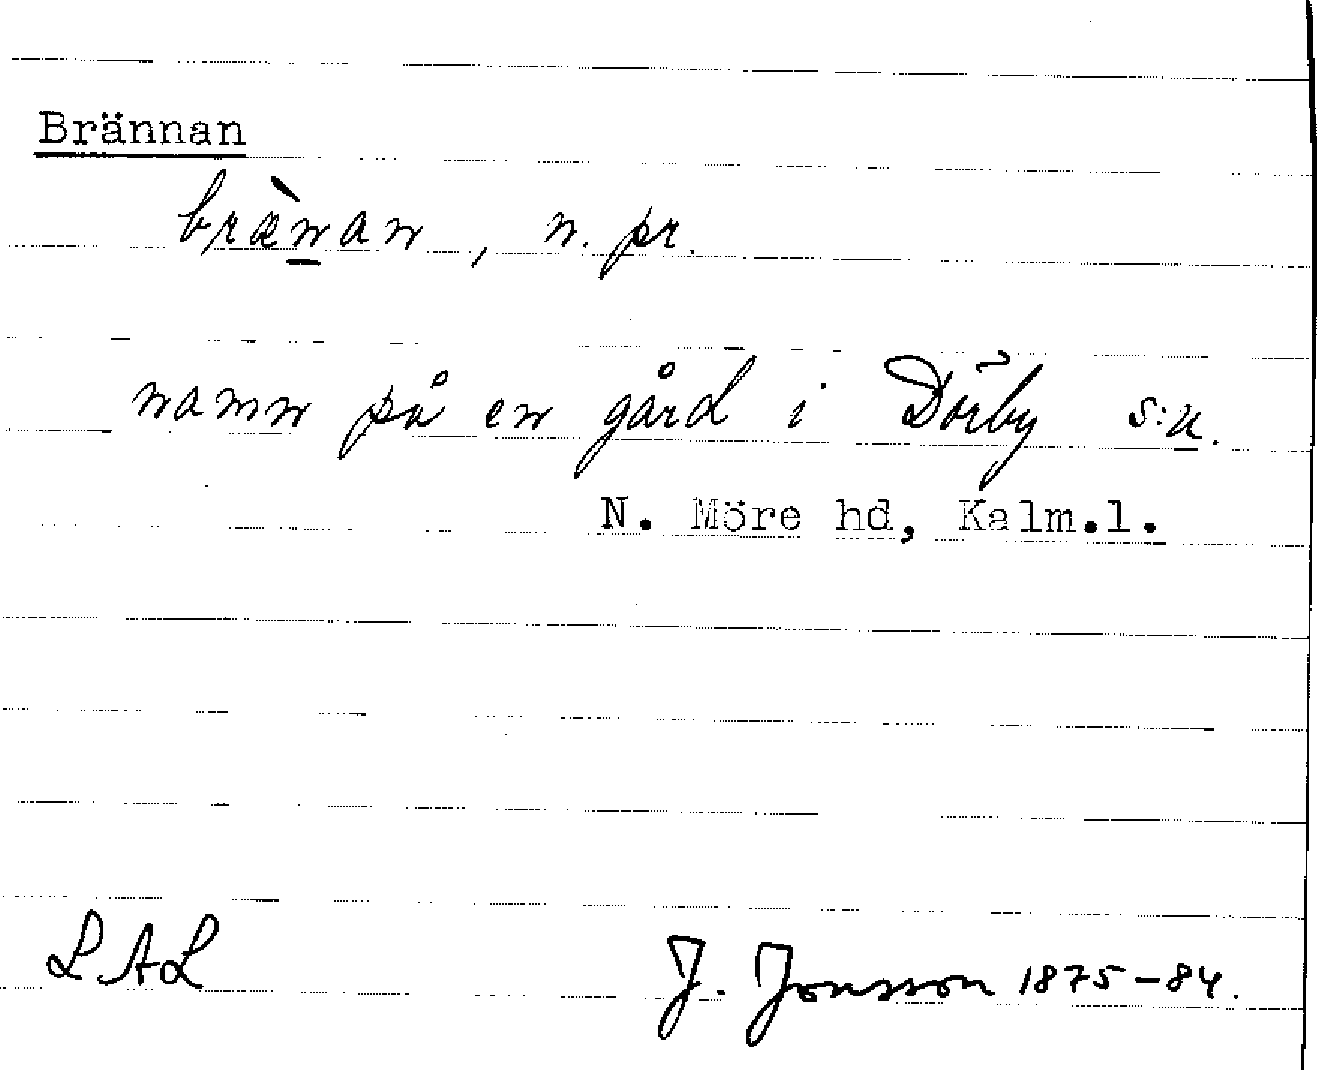 Brännan
bræ̀n̲an, n. pr.
namn på en gård i Dörby s:n.
N. Möre hd, Kalm.l.
LAL
J. Jonsson 1875-84.